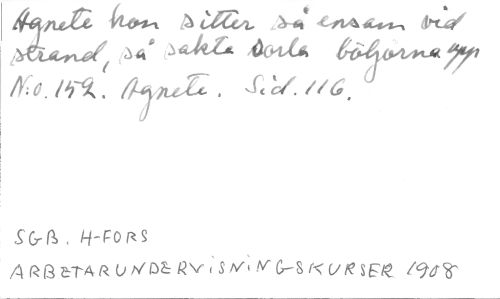 Agnete hon sitter så ensam vid
strand, så sakta sorla böljorna upp
N:o. 152. Agnete. Sid. 116.
SGB. H-FORS
ARBETARUNDERVISNINGSKURSER 1908